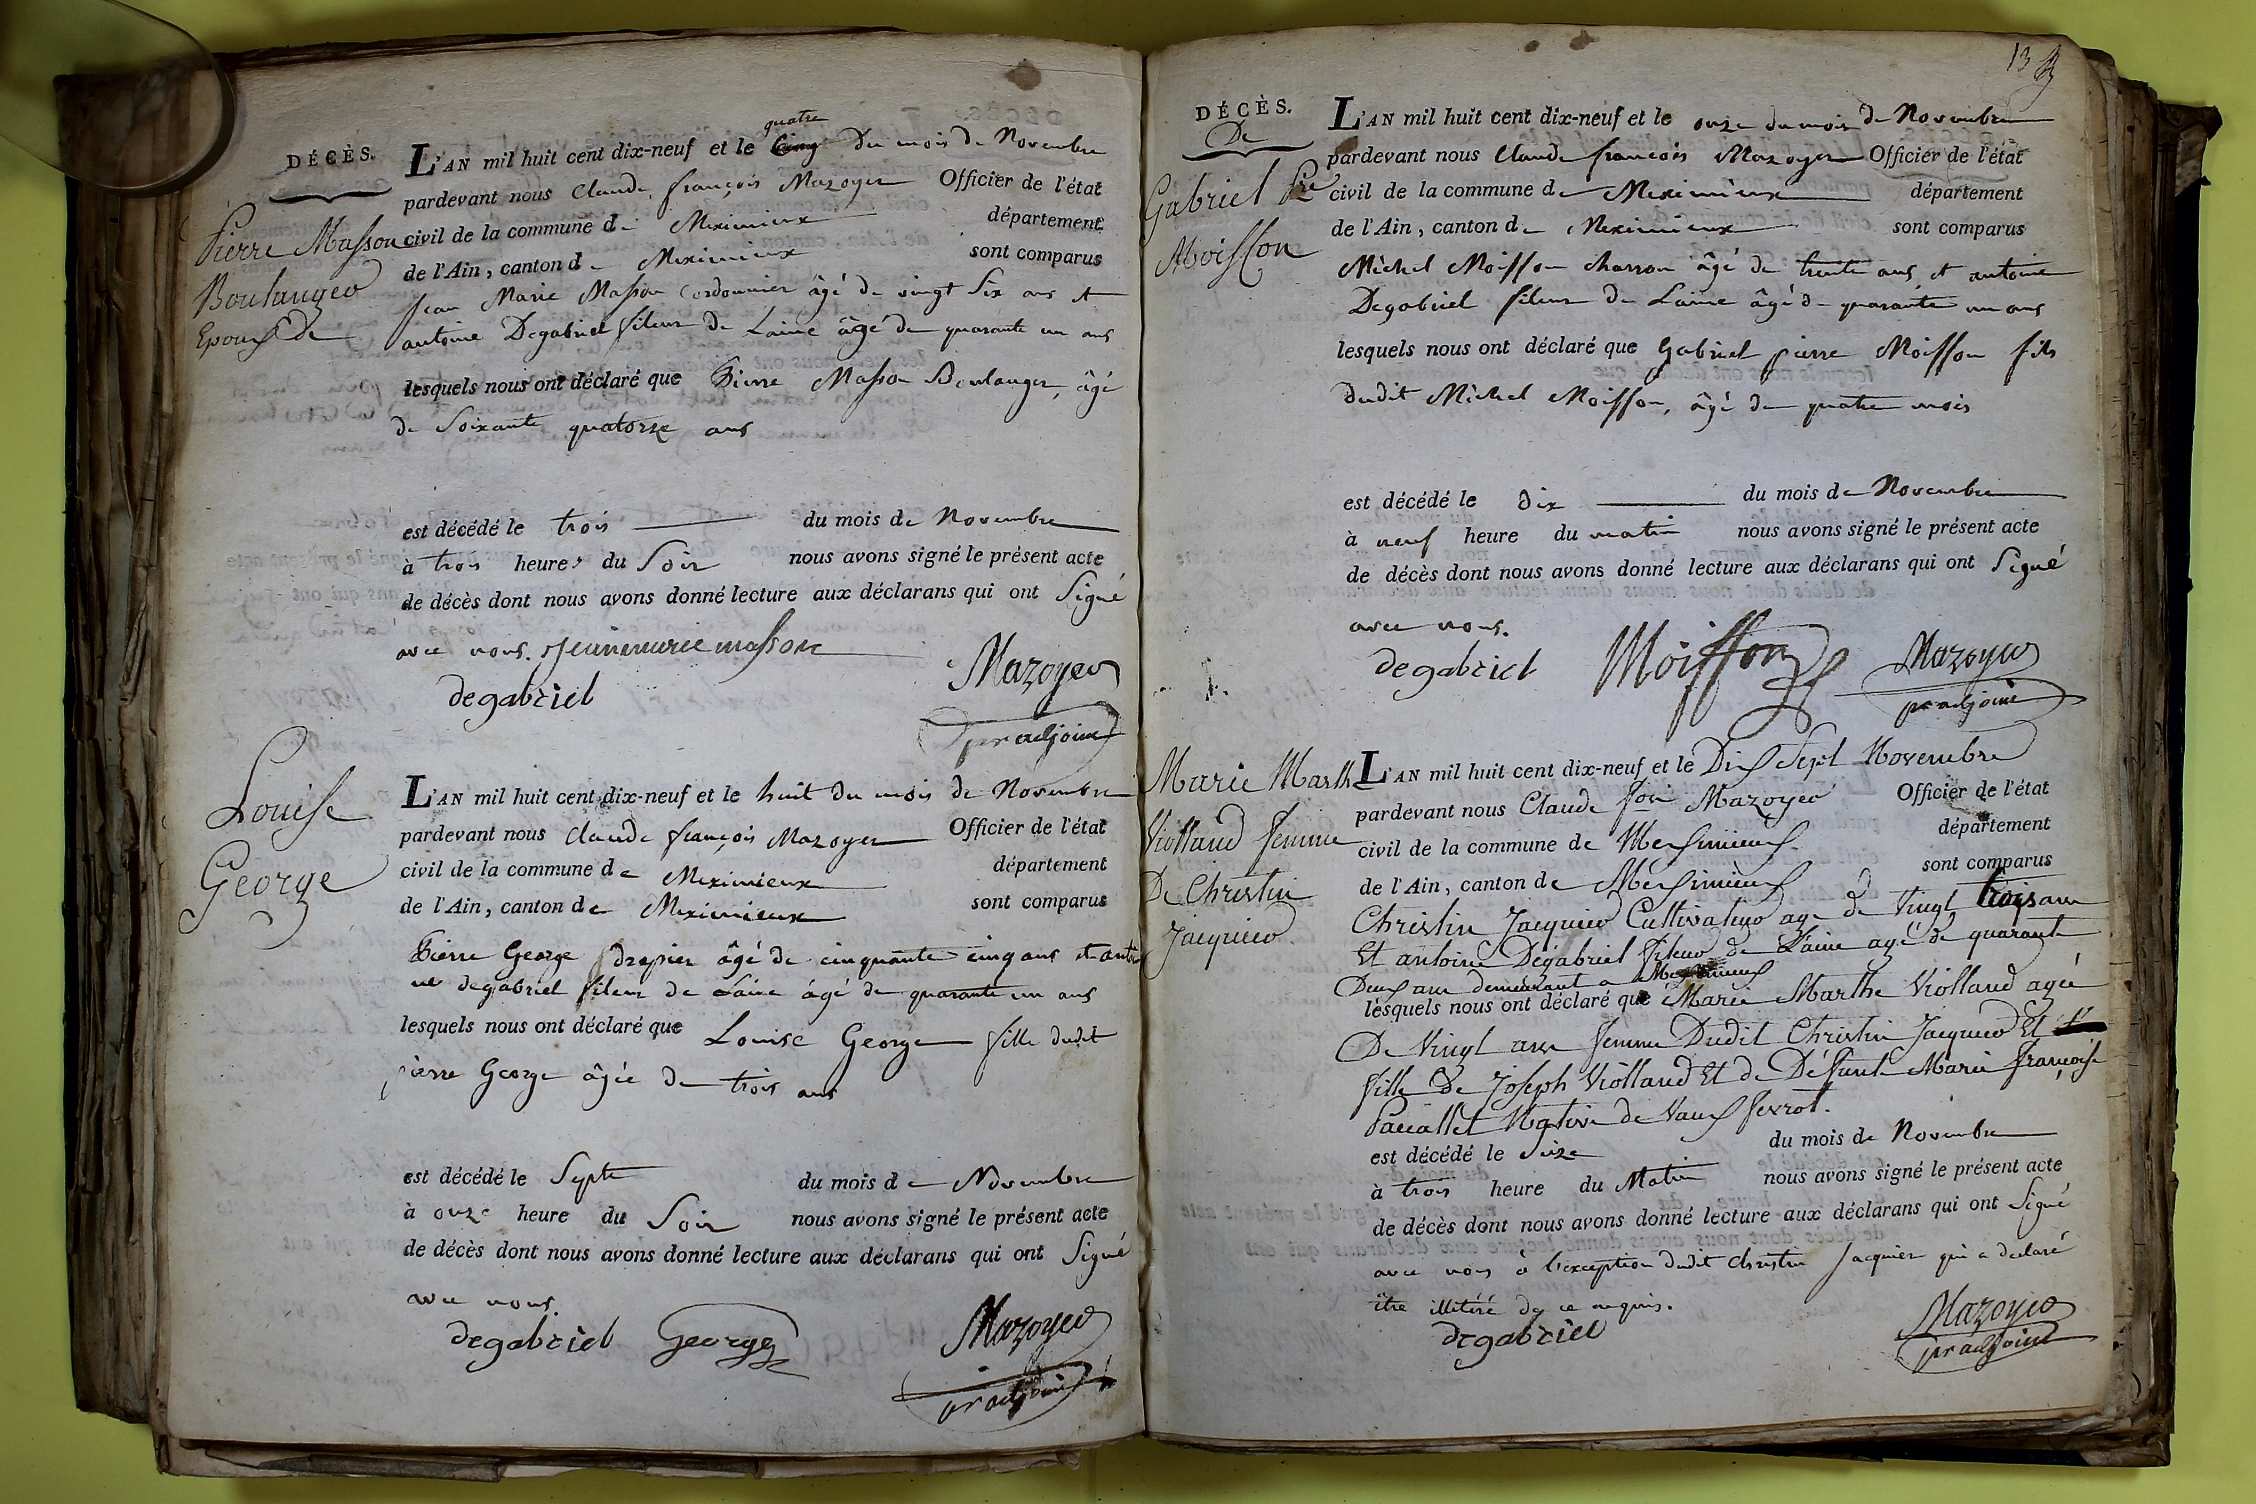 DÉCÈS.
Pierre Masson
Boulanger
Epoux De
L'AN mil huit cent dix-neuf et le quatre Cinq Du mois de Novembre
pardevant nous Claude françois Mazoyer Officier de l'état
civil de la commune de Meximieux département
de l'Ain, canton de Meximieux sont comparus
Jean Marie Masson Cordonnier âgé de vingt Six ans et
antoine Degabriel fileur de Laine âgé de quarante un ans
lesquels nous ont déclaré que Pierre Masson Boulanger, âgé
de Soixante quatorze ans
est décédé le trois du mois de Novembre
à trois heures du Soir nous avons signé le présent acte
de décès dont nous avons donné lecture aux déclarans qui ont Signé
avec nous. Jeanmarie masson
degabriel Mazoyer
pr adjoint
Louise
George
L'AN mil huit cent dix-neuf et le huit du mois de Novembre
pardevant nous Claude françois Mazoyer Officier de l'état
civil de la commune de Meximieux département
de l'Ain, canton de Meximieux sont comparus
Pierre George drapier âgé de cinquante cinq ans et antoi
ne degabriel fileur de Laine âgé de quarante un ans
lesquels nous ont déclaré que Louise George fille dudit
pierre George âgée de trois ans
est décédé le Septe du mois de Novembre
à onze heure du Soir nous avons signé le présent acte
de décès dont nous avons donné lecture aux déclarans qui ont Signé
avec nous.
degabriel George Mazoyer
pr adjoint
13
DÉCÈS.
De
Gabriel Pre
Moisson
L'AN mil huit cent dix-neuf et le onze du mois de Novembre
pardevant nous Claude françois Mazoyer Officier de l'état
civil de la commune de Meximieux département
de l'Ain, canton de Meximieux sont comparus
Michel Moisson charron âgé de trente ans et antoine
Degabriel fileur de Laine âgé de quarante un ans
lesquels nous ont déclaré que Gabriel pierre Moisson fils
dudit Michel Moisson, âgé de quatre mois
est décédé le dix du mois de Novembre
à neuf heure du matin nous avons signé le présent acte
de décès dont nous avons donné lecture aux déclarans qui ont Signé
avec nous.
degabriel Moisson Mazoyer
pr adjoint
Marie Marthe
Viollaud femme
De Christin
Jacquier
L'AN mil huit cent dix-neuf et le Dix Sept Novembre
pardevant nous Claude fois Mazoyer Officier de l'état
civil de la commune de Mexsimieux département
de l'Ain, canton de Mexsimieux sont comparus
Christin Jacquier Cultivateur age de Vingt trois ans
Et antoine Degabriel fileur de Laine agé de quarante
Deux ans demeurant a Meximieux
lesquels nous ont déclaré que Marie Marthe Viollaud agée
De Vingt ans femme Dudit Christin Jacquier Et
fille de Joseph Viollaud Et de Défunt Marie françoise
Native de Vaux fevrot.
est décédé le Seize du mois de Novembre
à trois heure du Matin nous avons signé le présent acte
de décès dont nous avons donné lecture aux déclarans qui ont Signé
avec nous à l'exception dudit Christin Jacquier qui a declaré
être illitéré de ce requis.
degabriel Mazoyer
pr adjoint